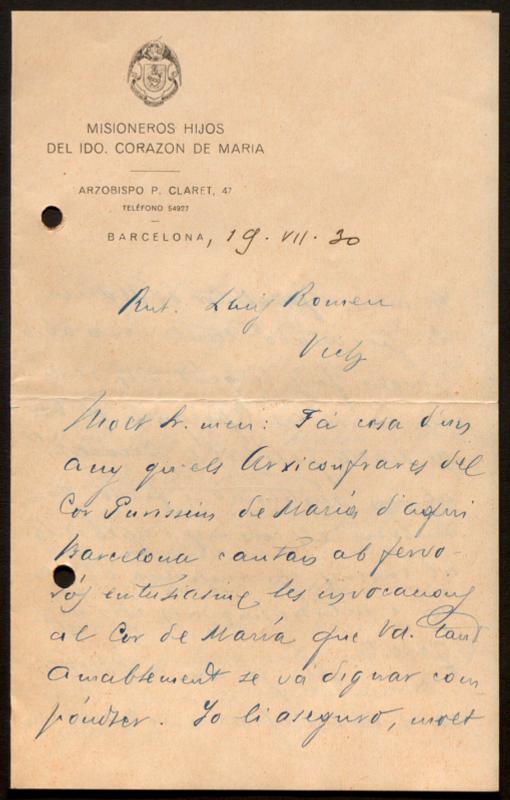 MISIONEROS HIJOS
DEL IDO. CORAZON DE MARIA
ARZOBISPO P. CLARET, 47
TELÉFONO 54927
BARCELONA, 19. VII. 30
Rnt. Lluis Romeu
Vich
Molt Sr. meu: Fá cosa d'un
any qu'els Arxiconfrares del
Cor Purissim de María d'aqui
Barcelona cantan ab fervo-
rós entusiasme les invocacions
al Cor de María que Vd. tant
amablement se vá dignar com-
póndrer. Jo li aseguro, molt